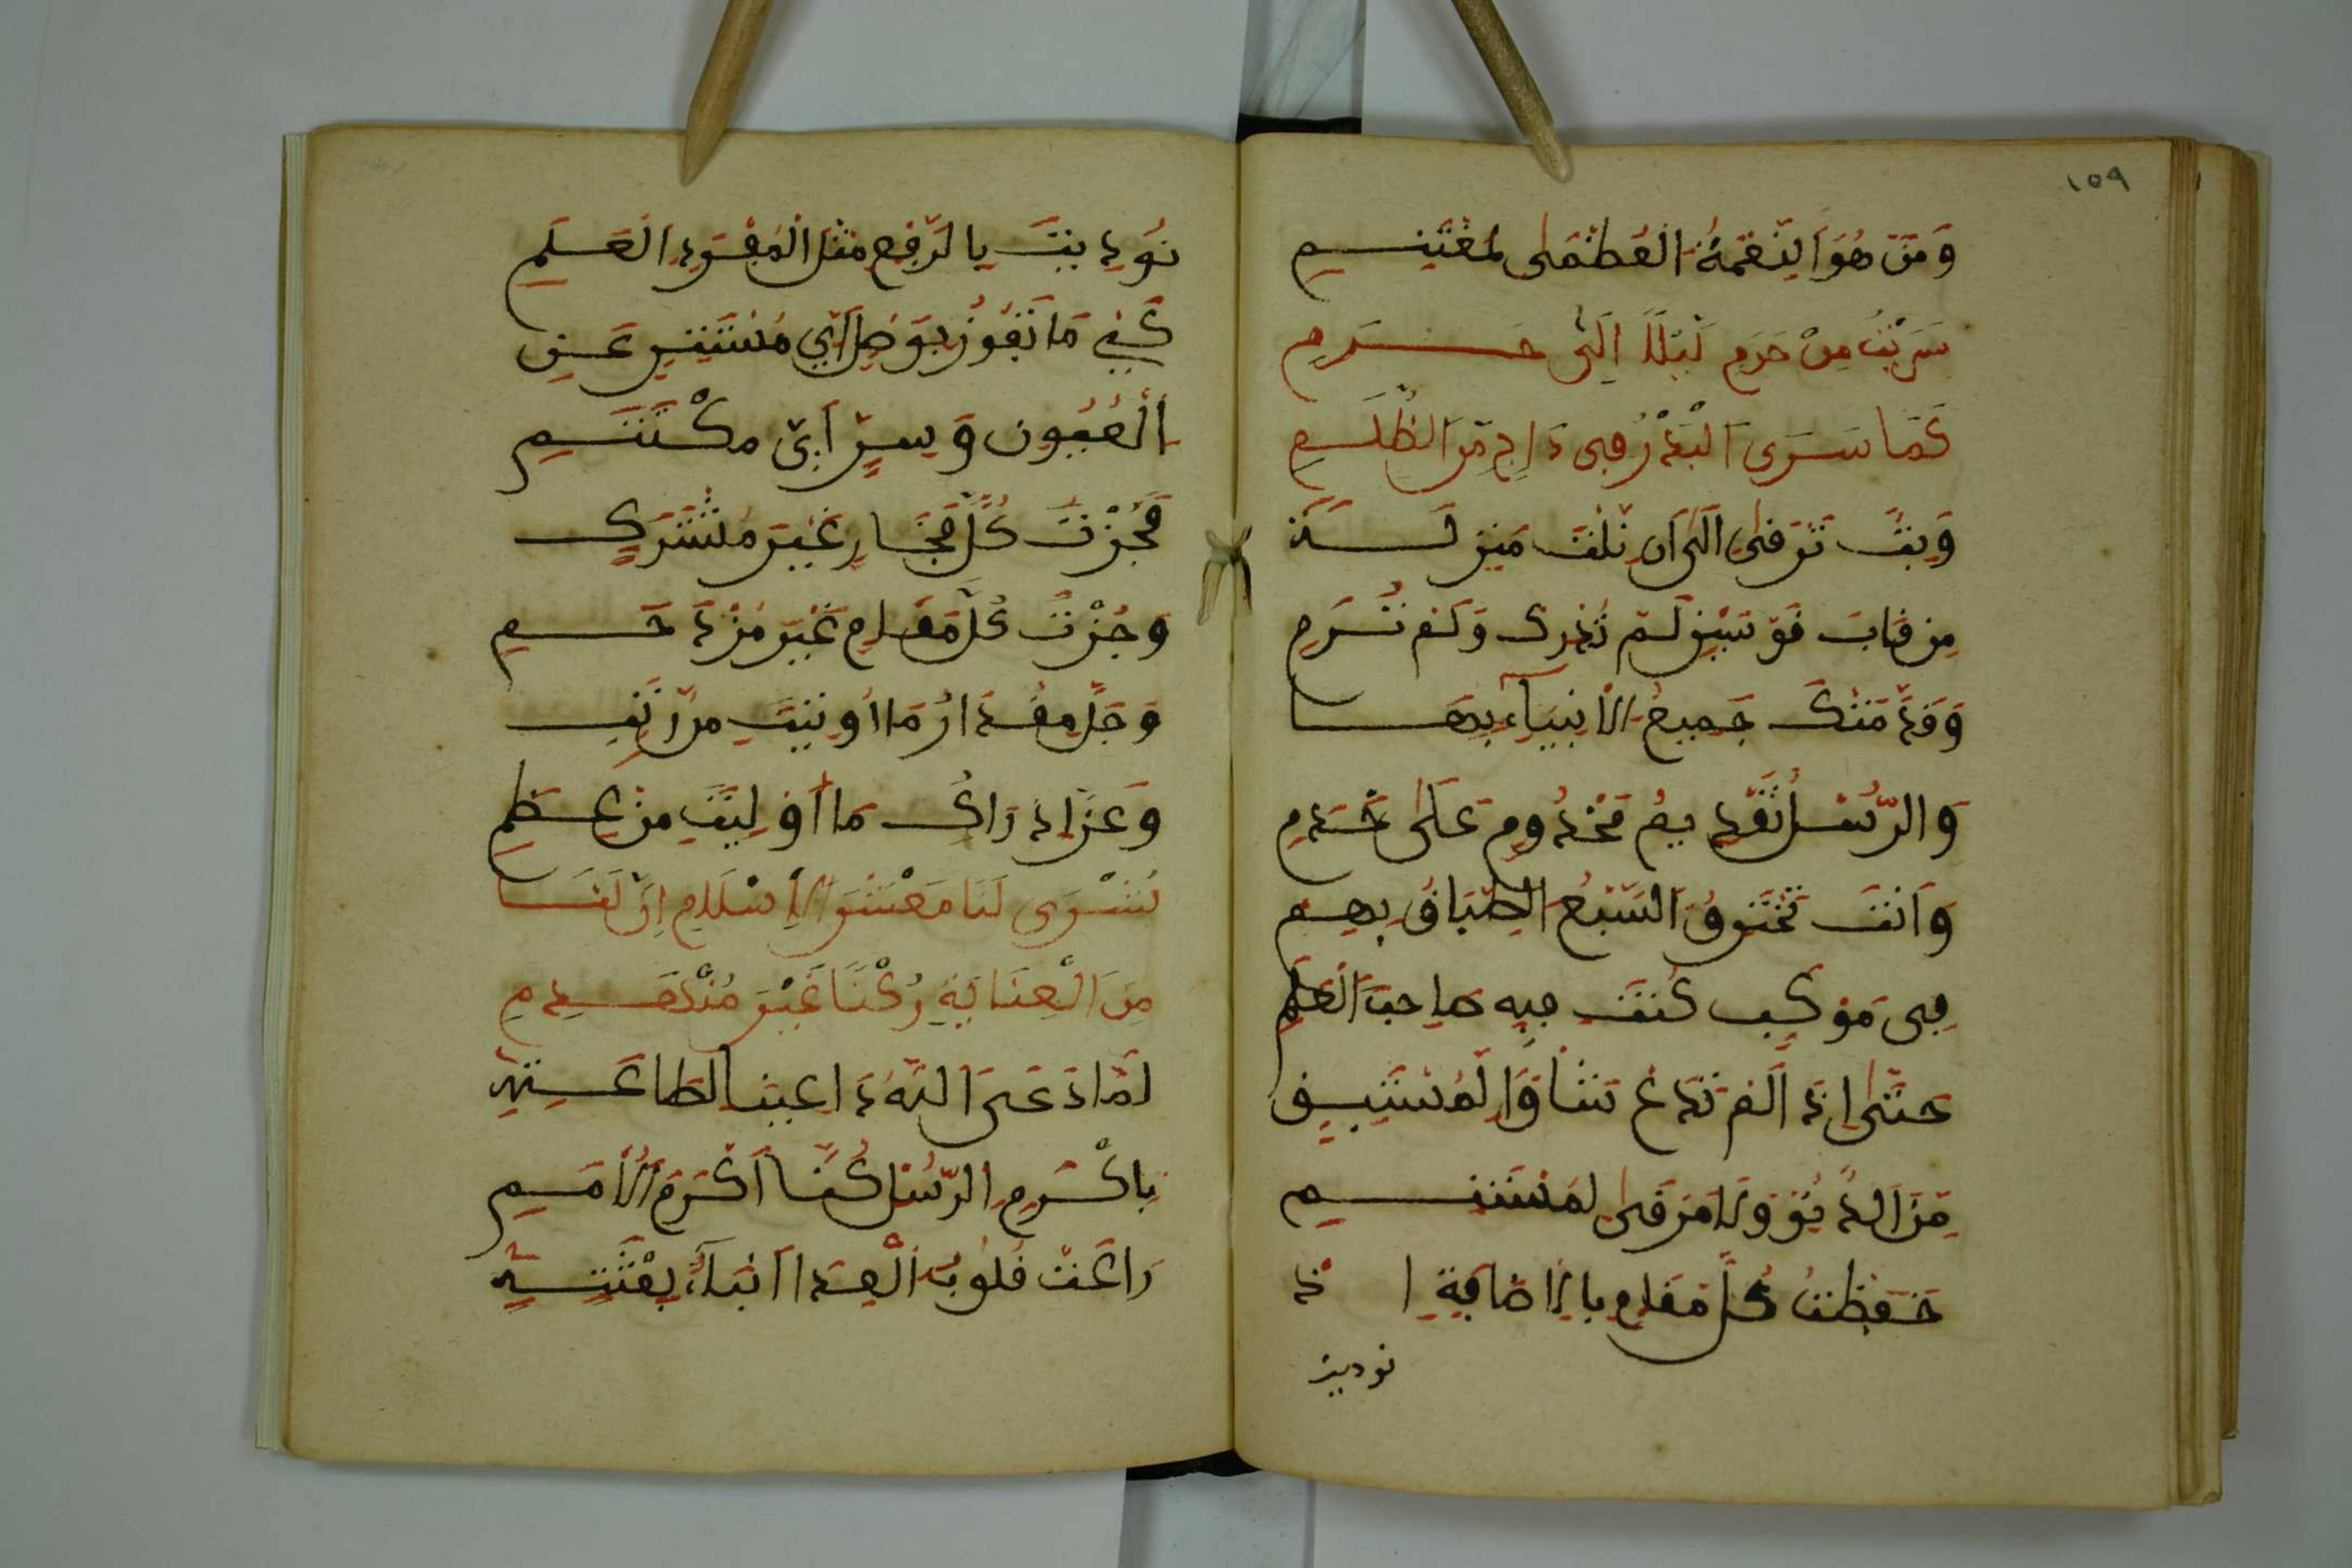 ١٥٩
وَمَنْ هُوَ النِّعْمَةُ الْعُظْمَى لِمُغْتَنِـــمِ
سَرَيْتَ مِنْ حَرَمٍ لَيْلًا اِلَى حَـــرَمِ
كَمَا سَرَى الْبَدْرُ فِى دَاجٍ مِّنَ الظُّلَـــمِ
وَبِتَّ تَرْقَى اِلَى اَن نِّلْتَ مَنْزِلَـــةً
مِن قَابَ قَوْسَيْنِ لَمْ تُدْرَكْ وَلَمْ تُـــرَمِ
وَقَدَّمَتْكَ جَمِيعُ الْاَنْبِيَآءِ بِهَـــا
وَالرُّسْلُ تَقْدِيمُ مَخْدُومٍ عَلَى خَـــدَمِ
وَاَنْتَ تَخْتَرِقُ السَّبْعَ الطِّبَاقَ بِهِـــمْ
فِى مَوْكِبٍ كُنْتَ فِيهِ صَاحِبَ الْعَلَمِ
حَتَّى اِذَا لَمْ تَدَعْ شَأْوًا لِّمُسْتَبِـــقٍ
مِّنَ الدُّنُوِّ وَلَا مَرْقًى لِمُسْتَنِـــمِ
خَفَضْتَ كُلَّ مَقَامٍ بِالْاِضَافَةِ اِ ذْ
نوديت
نُودِيتَ بِالرَّفْعِ مِثْلَ الْمُفْرَدِ الْعَـــلَمِ
كَيْمَا تَفُوزَ بِوَصْلٍ اَيِّ مُسْتَتِرٍ عَـــنِ
الْعُيُونِ وَسِرٍّ اَيِّ مُكْتَتَـــمِ
فَحُزْتَ كُلَّ فَخَارٍ غَيْرَ مُشْتَرَكٍ
وَجُزْتَ كُلَّ مَقَامٍ غَيْرَ مُزْدَحَـــمِ
وَجَلَّ مِقْدَارُ مَا اُوتِيتَ مِن رُّتَبٍ
وَعَزَّ اِدْرَاكُ مَا اُولِيتَ مِن نِّعَـــمِ
بُشْرَى لَنَا مَعْشَرَ الْاِسْلَامِ اِنَّ لَنَـــا
مِنَ الْعِنَايَةِ رُكْنًا غَيْرَ مُنْهَـــدِمِ
لَمَّا دَعَى اللّٰهُ دَاعِينَا لِطَاعَـــتِهِ
بِاَكْرَمِ الرُّسْلِ كُنَّا اَكْرَمَ الْاُمَـــمِ
رَاعَتْ قُلُوبَ الْعِدَا اَنْبَآءُ بِعْثَتِـــهِ